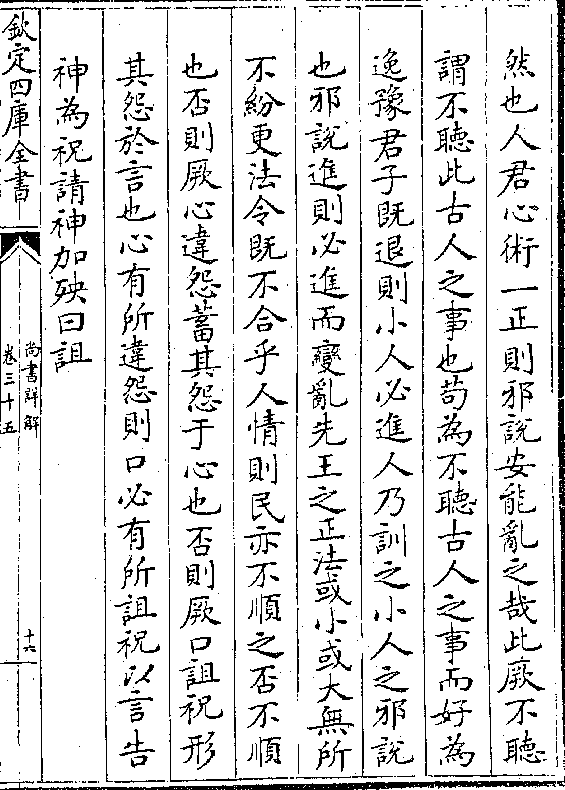 然也人君心術一正則邪說安能亂之哉此厥不聽
謂不聽此古人之事也苟為不聽古人之事而好為
逸豫君子既退則小人必進人乃訓之小人之邪說
也邪說進則必進而變亂先王之正法或小或大無所
不紛更法令既不合乎人情則民亦不順之否不順
也否則厥心違怨蓄其怨于心也否則厥口詛祝形
其怨於言也心有所違怨則口必有所詛祝以言告
神為祝請神加殃曰詛
欽定四庫全書
尚書詳解
卷三十五
十六